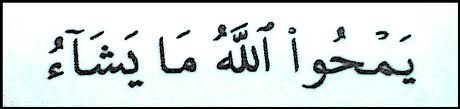 يَمْحُوا۟ ٱللَّهُ مَا يَشَآءُ